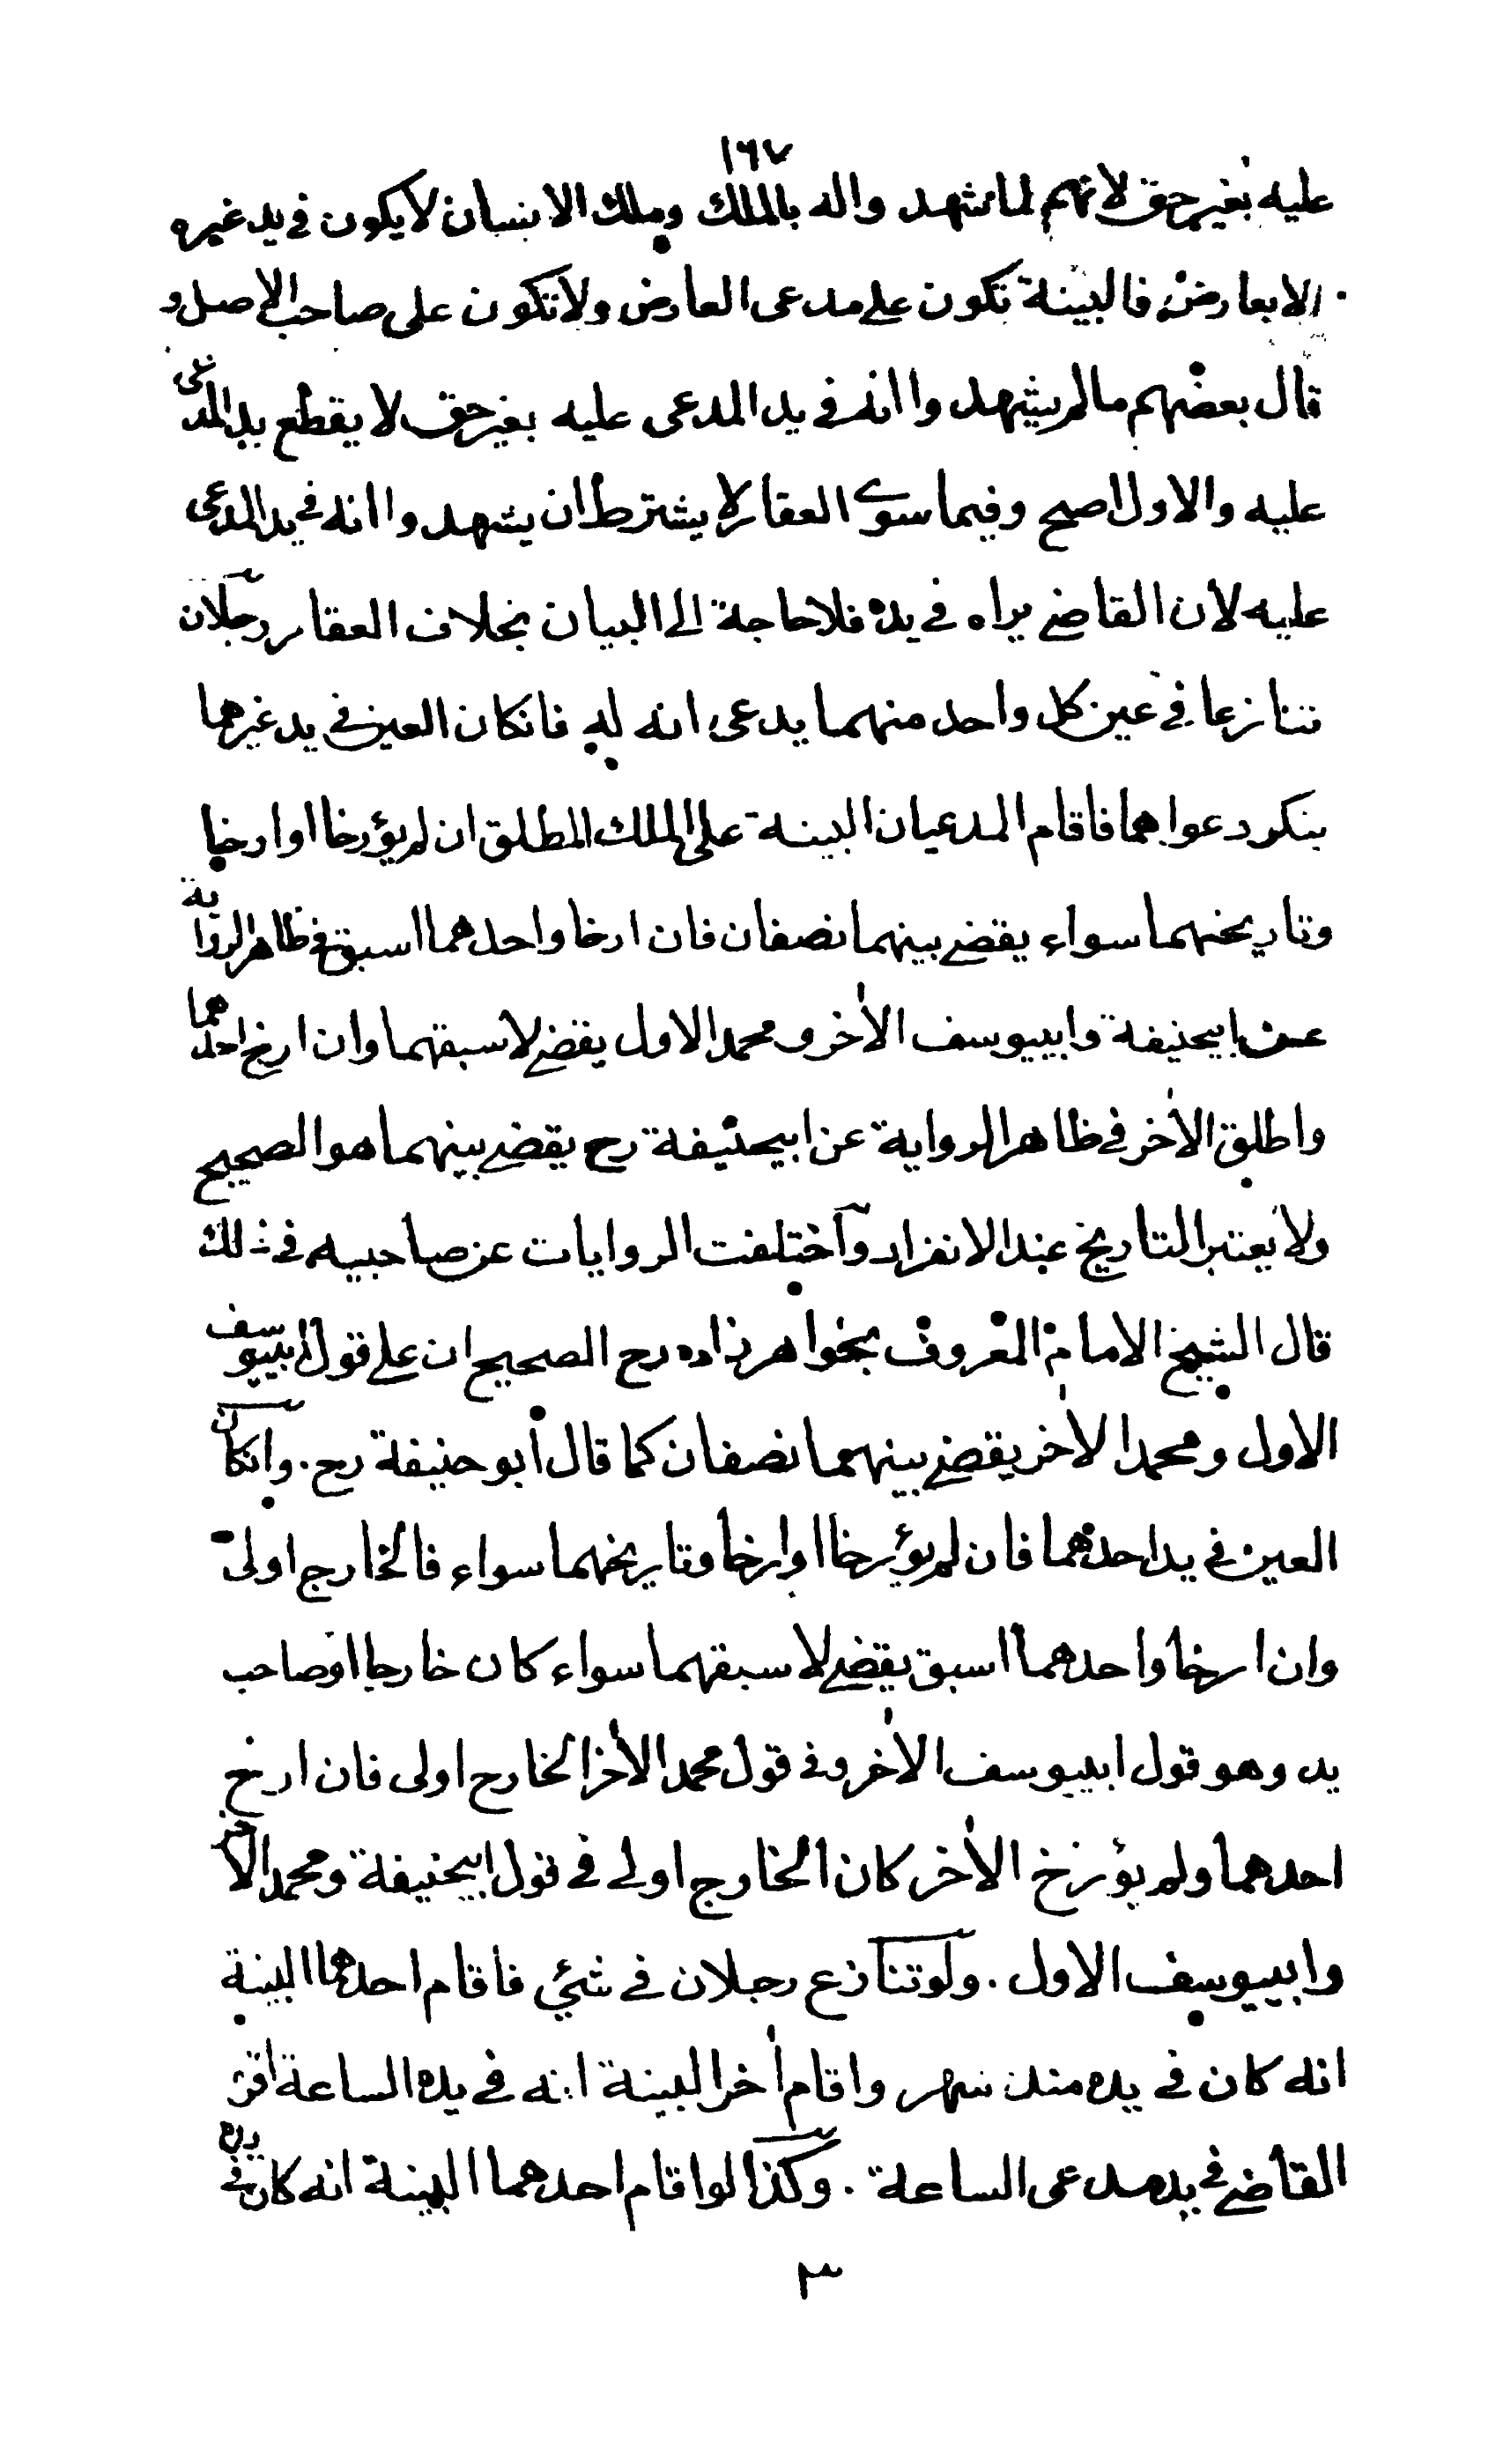 ١٦٧
عليه بغير حق لانهم لما شهدوا له بالملك وملك الانسان لا يكون في يد غيره
الا بعارض فالبينة تكون على مدعى العارض ولا تكون على صاحب الاصل و
قال بعضهم ما لم يشهدوا انه في يد المدعى عليه بغير حق لا يقطع يد المدعى
عليه والاول اصح وفيما سوى العقار لا يشترط ان يشهدوا انه في يد المدعى
عليه لان القاضي يراه في يده فلا حاجة الى البيان بخلاف العقار رجلان
تنازعا في عين كل واحد منهما يدعى انه له فانكان العين في يد غيرهما
ينكر دعواهما فاقام المدعيان البينة على الملك المطلق ان لم يؤرخا او ارخا
وتاريخهما سواء يقضي بينهما نصفان فان ارخا واحدهما اسبق في ظاهر الرواية
عن ابيحنيفة وابييوسف الأخر ومحمد الاول يقضي لاسبقهما وان ارخ احدهما
واطلق الأخر في ظاهر الرواية عن ابيحنيفة رح يقضي بينهما هو الصحيح
ولا يعتبر التاريخ عند الانفراد واختلفت الروايات عن صاحبيه في ذلك
قال الشيخ الامام المعروف بخواهرزاده رح الصحيح ان على قول ابييوسف
الاول ومحمد الأخر يقضي بينهما نصفان كما قال أبو حنيفة رح . وانكان
العين في يد احدهما فان لم يؤرخا او ارخا وتاريخهما سواء فالخارج اولى
وان ارخا واحدهما اسبق يقضي لاسبقهما سواء كان خارجا او صاحب
يد وهو قول ابييوسف الأخر وفي قول محمد الأخر الخارج اولى فان ارخ
احدهما ولم يؤرخ الأخر كان الخارج اولى في قول ابيحنيفة ومحمد الأخر
وابييوسف الاول . ولو تنازع رجلان في شئي فاقام احدهما البينة
انه كان في يده منذ شهر واقام أخر البينة انه في يده الساعة اقر
القاضي في يد مدعى الساعة . وكذا لو اقام احدهما البينة انه كان في يده
٣